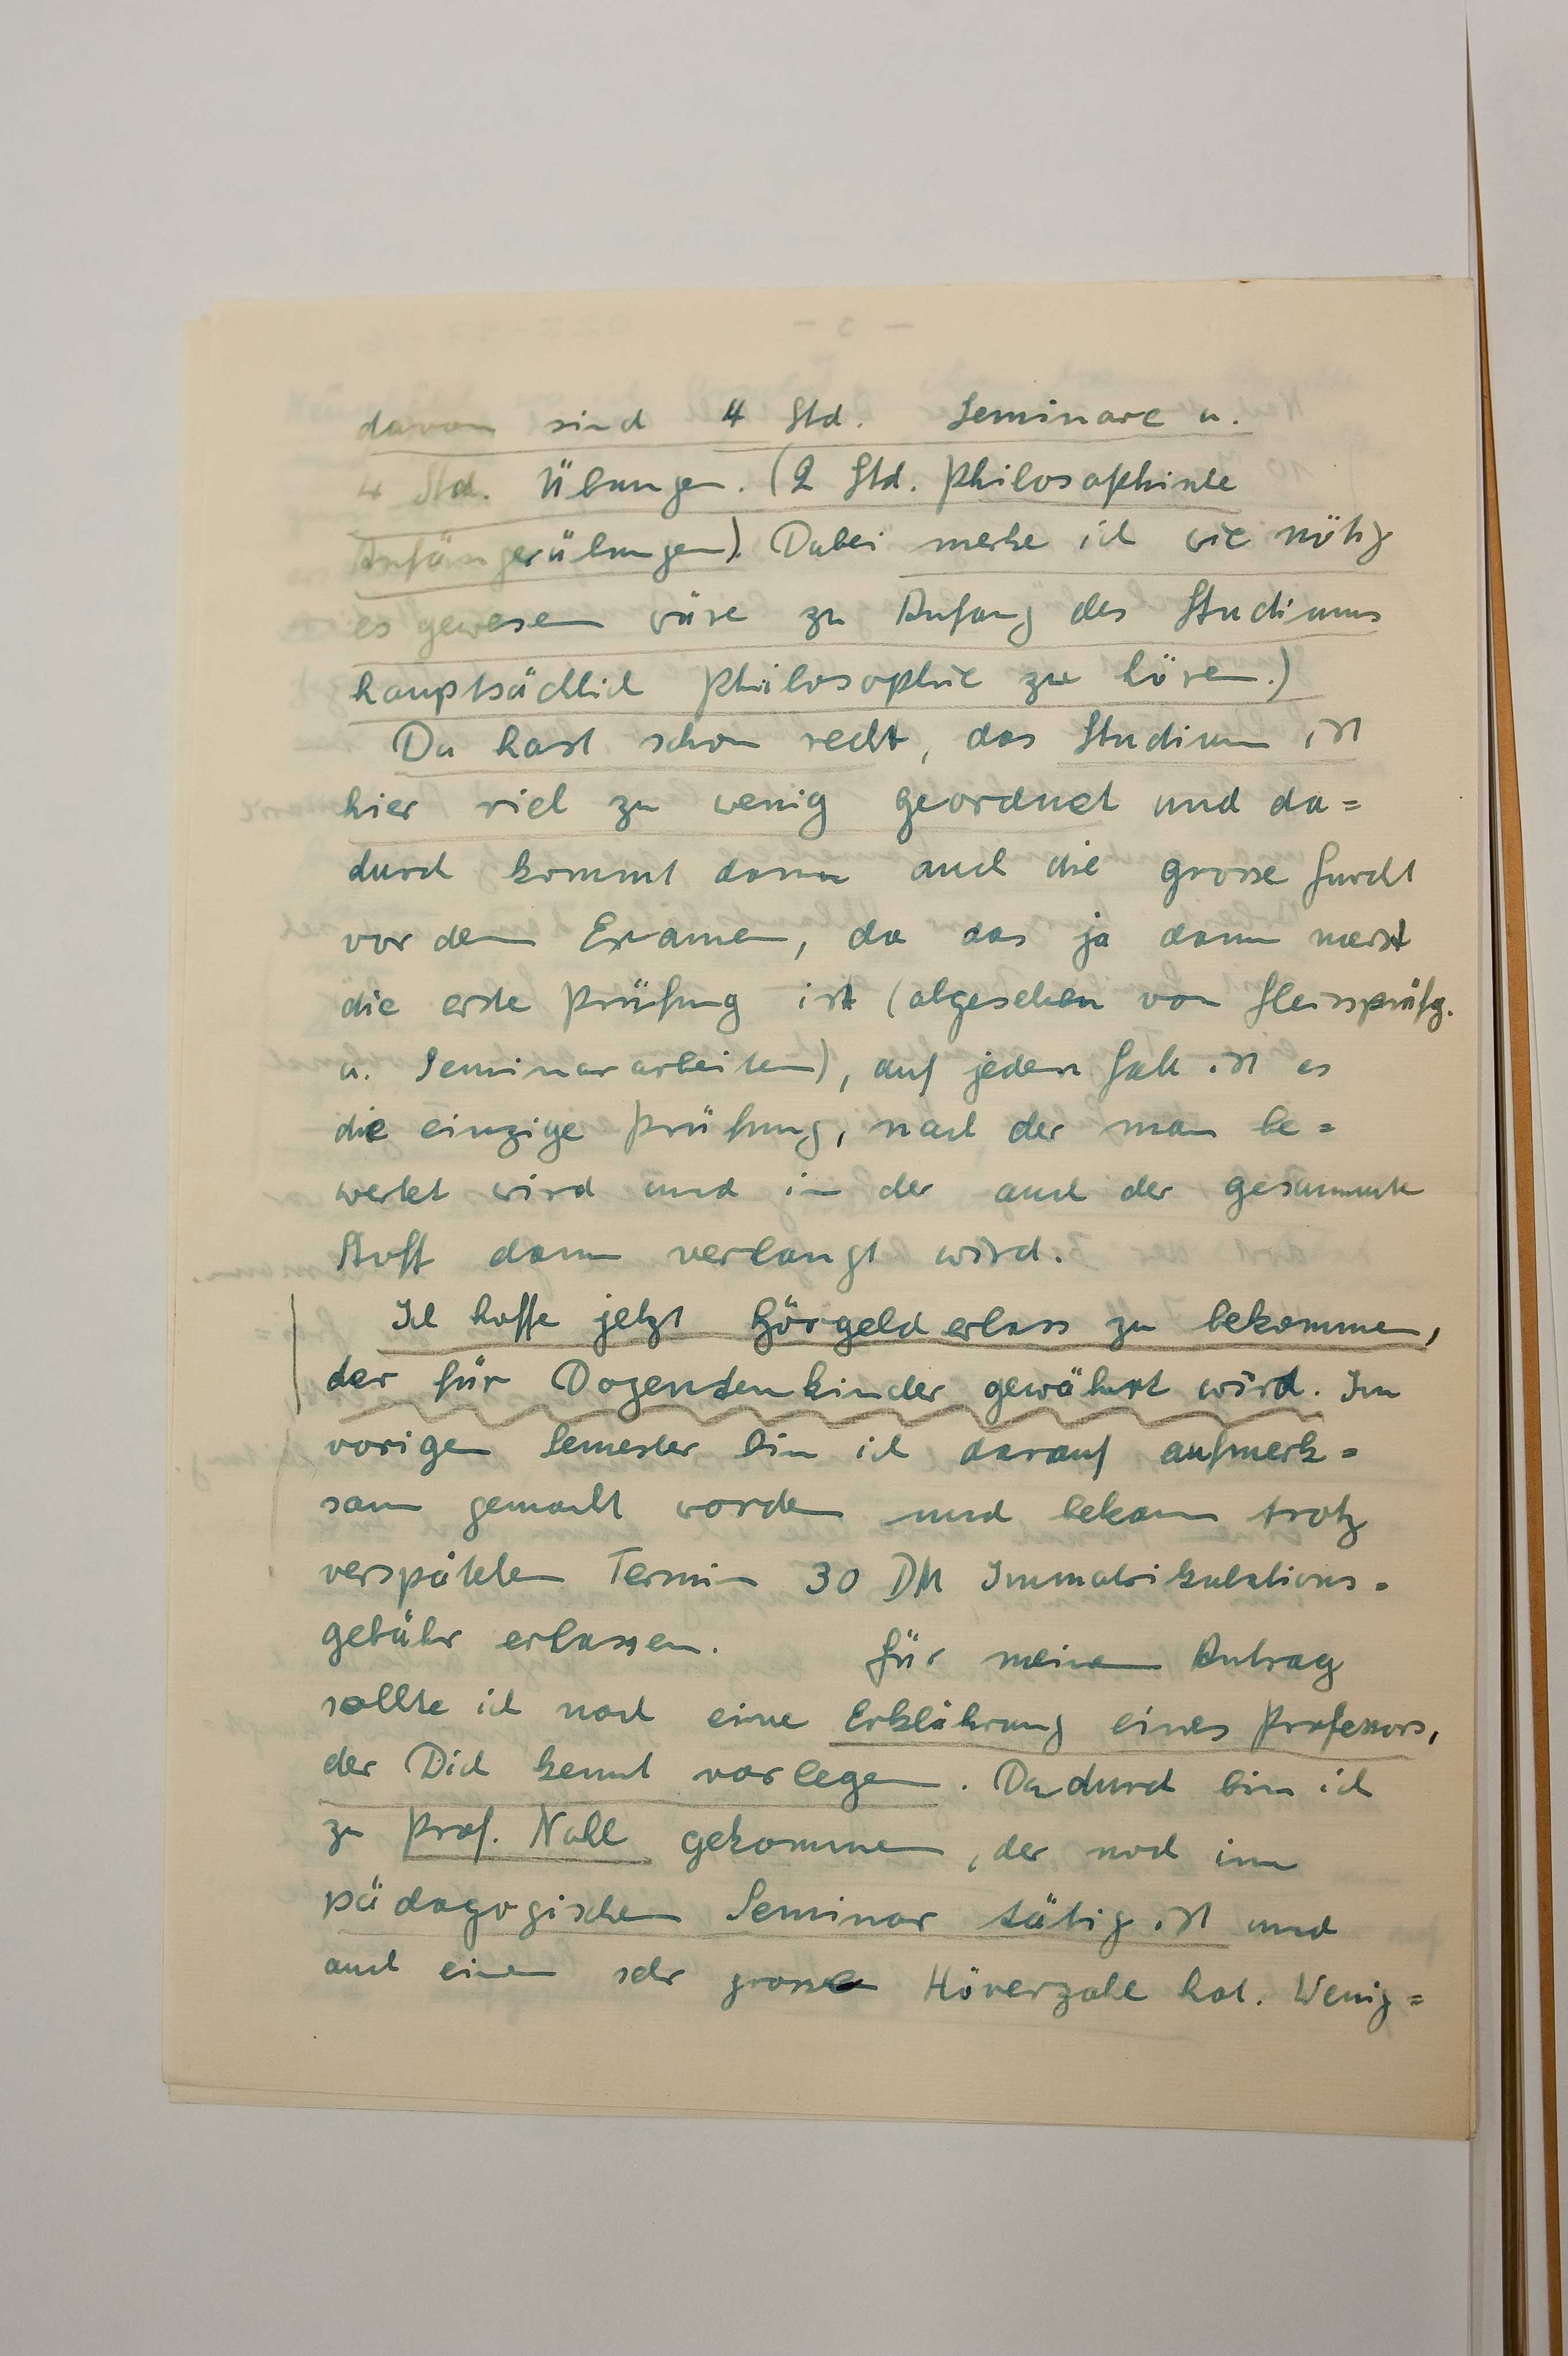 davon sind 4 Std. Seminare u.
4 Std. Übungen. (2 Std. Philosophische
Anfängerübungen). Dabei merke ich wie nötig
es gewesen wäre zu Anfang des Studiums
hauptsächlich Philosophie zu hören.)
Du hast schon recht, das Studium ist
hier viel zu wenig geordnet und da=
durch kommt dann auch die grosse Furcht
vor dem Examen, da das ja dann meist
die erste Prüfung ist (abgesehen von Fleissprüfg.
u. Seminararbeiten), auf jeden Fall ist es
die einzige Prüfung, nach der man be=
wertet wird und in der auch der gesammte
Stoff dann verlangt wird.
Ich hoffe jetzt Hörgelderlass zu bekommen,
der für Dozentenkinder gewährt wird. Im
vorigen Semester bin ich darauf aufmerk=
sam gemacht worden und bekam trotz
verspäteten Termin 30 DM Immatrikulations=
gebühr erlassen. Für meinen Antrag
sollte ich noch eine Erklährung eines Professors,
der Dich kennt vorlegen. Dadurch bin ich
zu Prof. Nohl gekommen, der noch im
pädagogischen Seminar tätig ist und
auch einen sehr grosse Hörerzahl hat. Wenig=